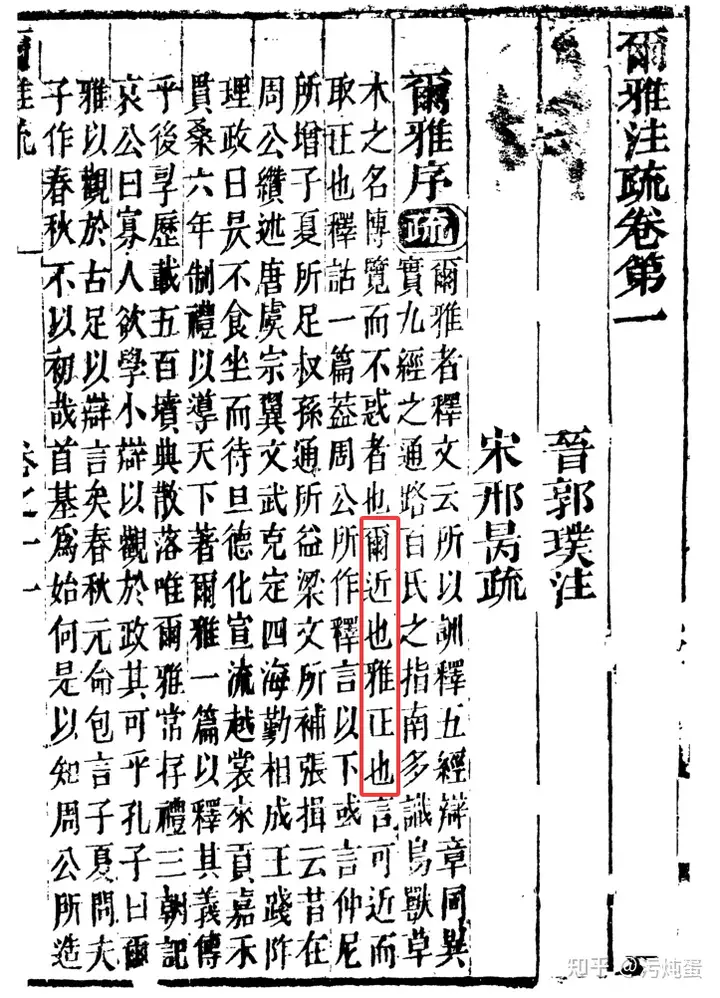 爾雅注疏卷第一
晉郭璞注
宋邢昺疏
爾雅序疏爾雅者釋文云所以訓釋五經辯章同異
實九經之通路百氏之指南多識鳥獸草
木之名博覽而不惑者也爾近也雅正也言可近而
取正也釋詁一篇葢周公所作釋言以下或言仲尼
所增子夏所足叔孫通所益梁文所補張揖云昔在
周公纘述唐虞宗翼文武克定四海勤相成王踐阼
理政日昃不食坐而待旦德化宣流越裳來貢嘉禾
貫桑六年制禮以導天下著爾雅一篇以釋其義傳
乎後孠歷載五百墳典散落唯爾雅常存禮三朝記
哀公曰寡人欲學小辯以觀於政其可乎孔子曰爾
雅以觀於古足以辯言矣春秋元命包言子夏問夫
子作春秋不以初哉首基為始何是以知周公所造
爾雅疏
卷之一 一
知乎 @污炖蛋